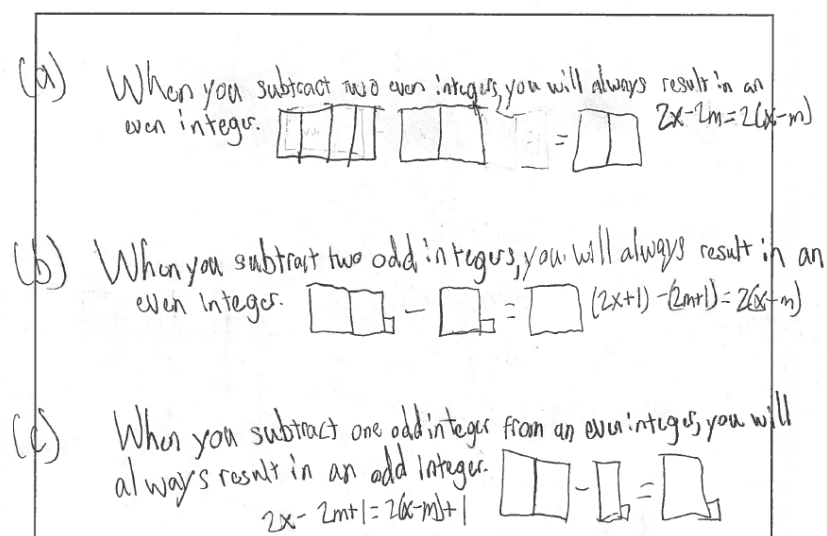 (a) When you subtract two even integers, you will always result in an
even integer. = 2x-2m=2(x-m)
(b) When you subtract two odd integers, you will always result in an
even integer. - = (2x+1)-(2m+1)=2(x-m)
(c) When you subtract one odd integer from an even integer, you will
always result in an odd integer. - =
2x- 2m+1=2(x-m)+1